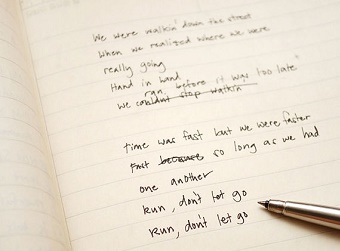 We were walkin' down the street
When we realized where we were
really going
Hand in hand
ran, before it was too late
We couldnt stop walkin
time was fast but we were faster
Fast because so long as we had
one another
Run, don't let go
Run, don't let go